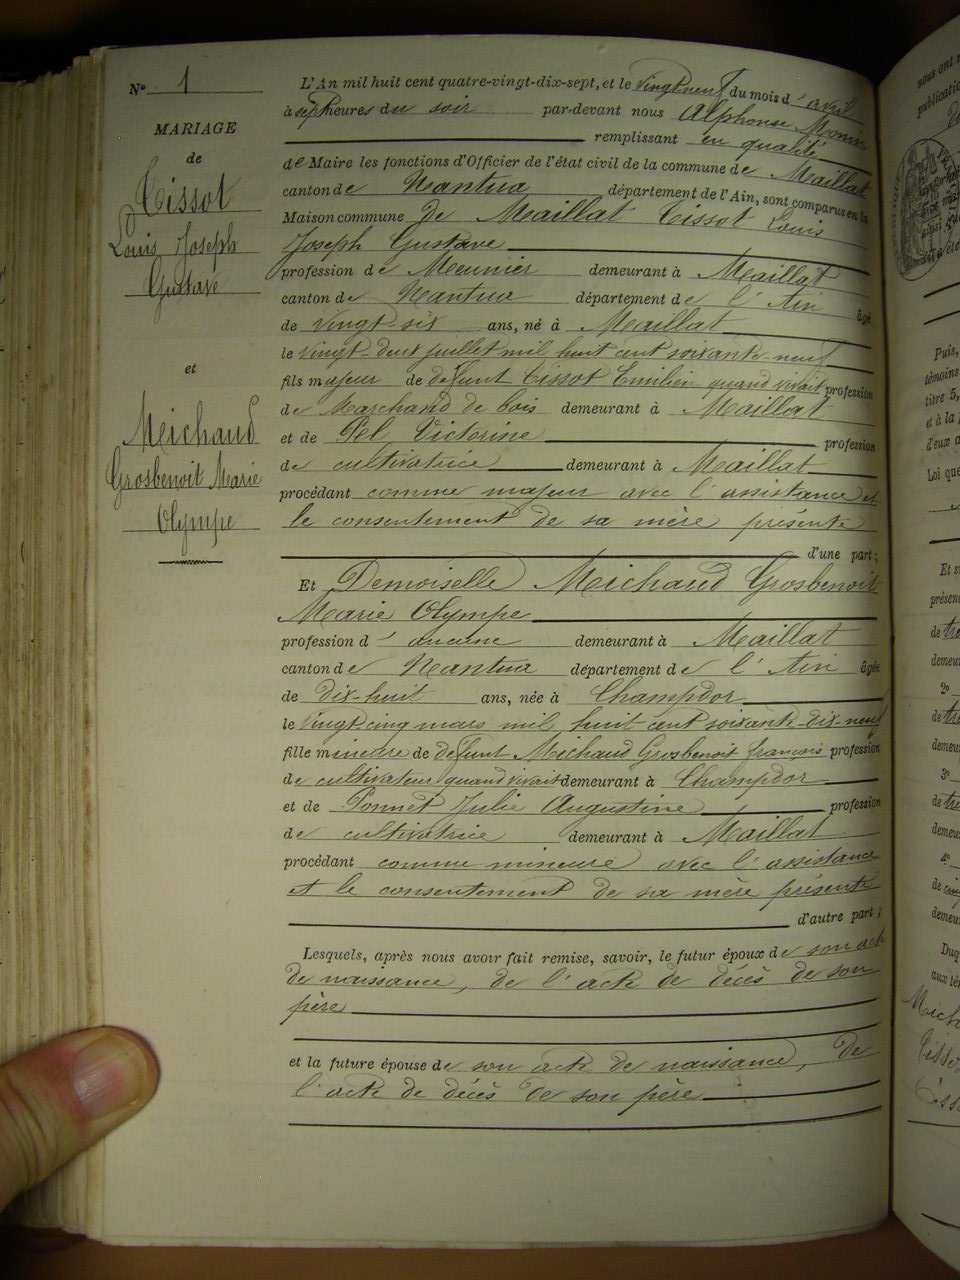 N° 1
MARIAGE
de
Tissot
Louis Joseph
Gustave
et
Michaud
Grosbenoit Marie
Olympe
L'An mil huit cent quatre-vingt-dix-sept, et le vingt neuf du mois d'avril
à sept heures du soir par-devant nous Alphonse Monin
remplissant en qualité
de Maire les fonctions d'Officier de l'état civil de la commune de Maillat
canton de Nantua département de l'Ain, sont comparus en la
Maison commune de Maillat Tissot Louis
Joseph Gustave
profession de Meunier demeurant à Maillat
canton de Nantua département de l'Ain âgé
de vingt-six ans, né à Maillat
le vingt-deux juillet mil huit cent soixante-neuf
fils majeur de défunt Tissot Emilien quand vivait profession
de Marchand de bois demeurant à Maillat
et de Pel Victorine profession
de cultivatrice demeurant à Maillat
procédant comme majeur avec l'assistance et
le consentement de sa mère présente
d'une part;
Et Demoiselle Michaud Grosbenoit
Marie Olympe
profession d'aucune demeurant à Maillat
canton de Nantua département de l'Ain âgée
de dix-huit ans, née à Champdor
le vingt cinq mars mil huit cent soixante-dix-neuf
fille mineure de défunt Michaud Grosbenoit françois profession
de cultivateur quand vivait demeurant à Champdor
et de Ponnet Julie Augustine profession
de cultivatrice demeurant à Maillat
procédant comme mineure avec l'assistance
et le consentement de sa mère présente
d'autre part;
Lesquels, après nous avoir fait remise, savoir, le futur époux de son acte
de naissance, de l'acte de décès de son
père
et la future épouse de son acte de naissance, de
l'acte de décès de son père
nous ont
publication
Puis,
témoins
titre 5,
et à la
d'eux a
Loi que
Et
présen
de
demeu
2°
de
demeu
3°
de
demeu
4°
de
demeu
Duq
aux té
Mich
Tisso